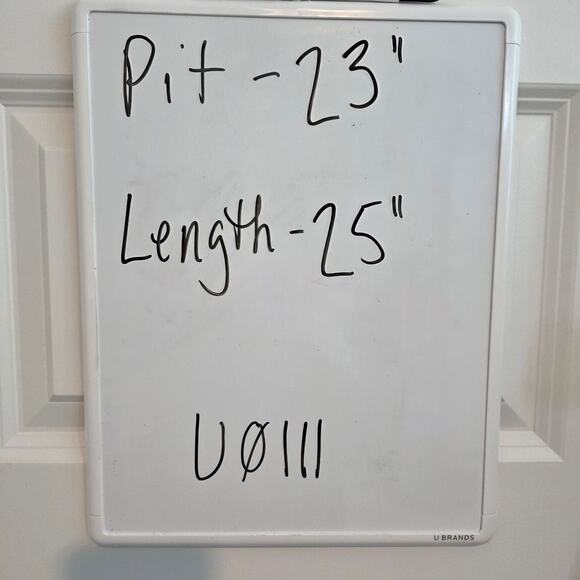 Pit - 23"
Length - 25"
UØ111
U BRANDS